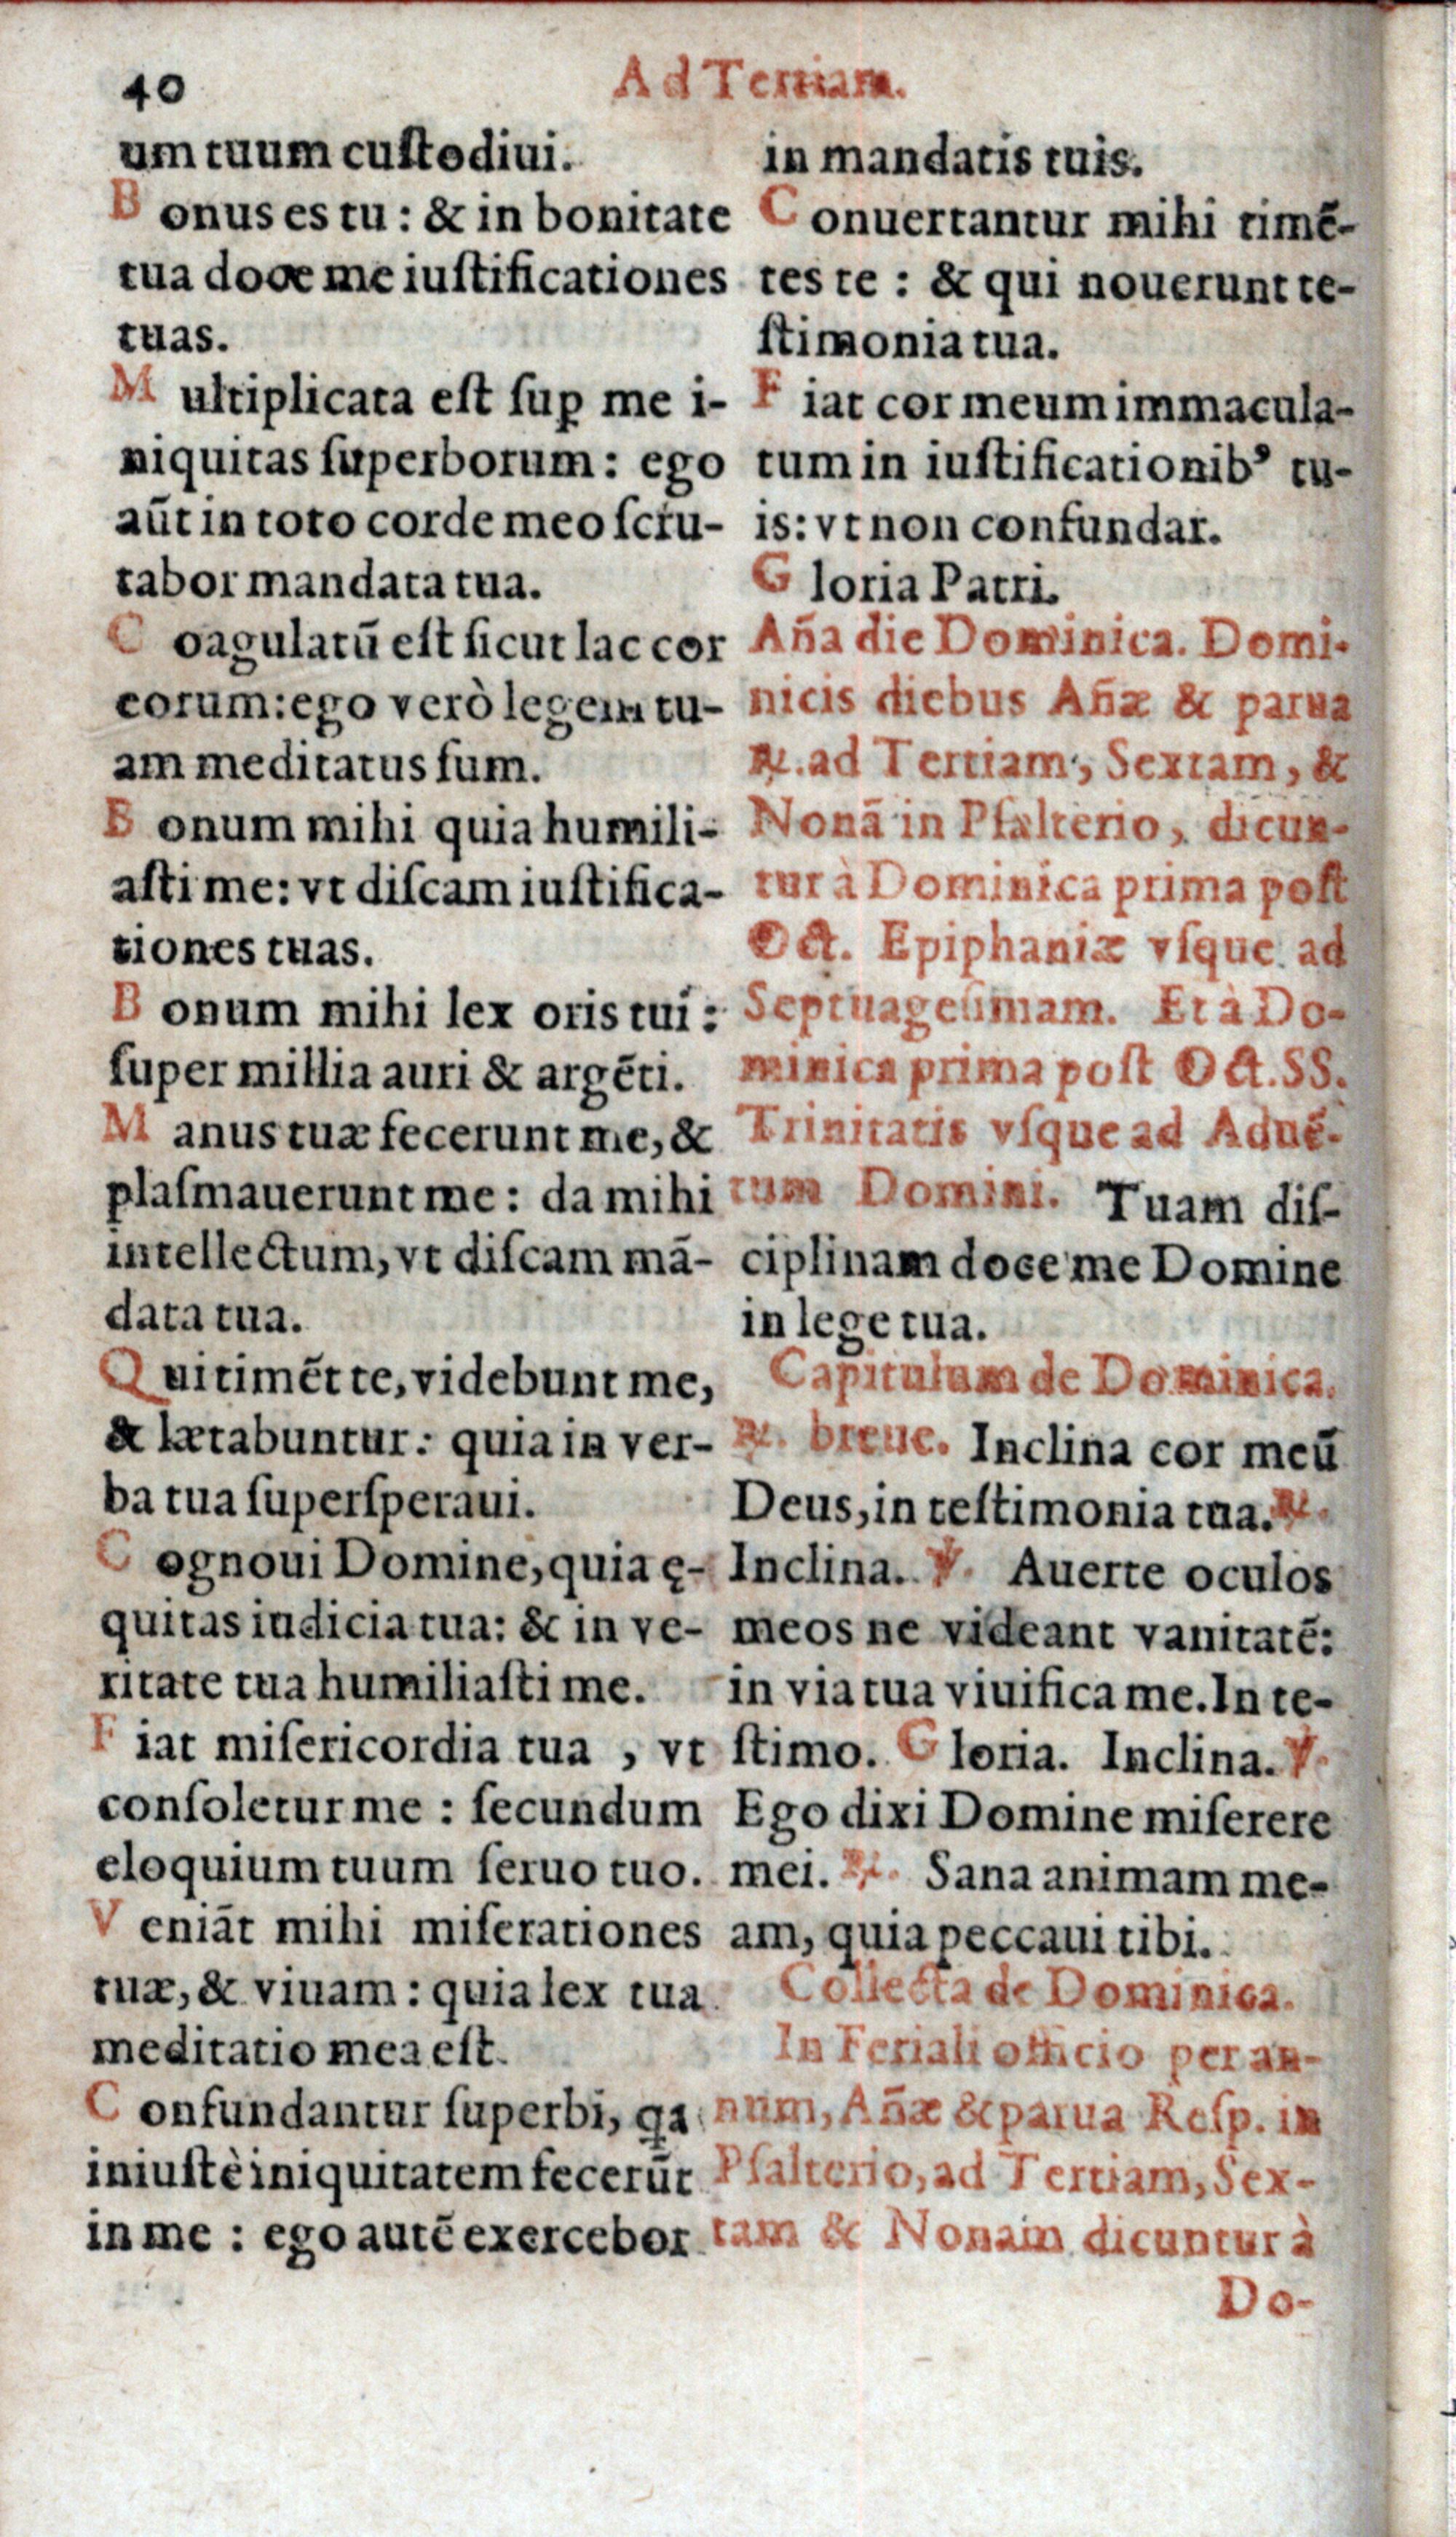 40
Ad Tertiam.
um tuum cuſtodiui.
Bonus es tu : & in bonitate
tua doce me iuſtificationes
tuas.
Multiplicata eſt ſuꝑ me i-
niquitas ſuperborum : ego
aūt in toto corde meo ſcru-
tabor mandata tua.
Coagulatū eſt ſicut lac cor
eorum: ego verò legem tu-
am meditatus ſum.
Bonum mihi quia humili-
aſti me: vt diſcam iuſtifica-
tiones tuas.
Bonum mihi lex oris tui :
ſuper millia auri & argēti.
Manus tuæ fecerunt me, &
plaſmauerunt me : da mihi
intellectum, vt diſcam mā-
data tua.
Qui timēt te, videbunt me,
& lætabuntur : quia in ver-
ba tua ſuperſperaui.
Cognoui Domine, quia ę-
quitas iudicia tua: & in ve-
ritate tua humiliaſti me.
Fiat miſericordia tua , vt
conſoletur me : ſecundum
eloquium tuum ſeruo tuo.
Veniāt mihi miſerationes
tuæ, & viuam : quia lex tua
meditatio mea eſt.
Confundantur ſuperbi, q̃a
iniuſtè iniquitatem fecerūt
in me : ego autē exercebor
in mandatis tuis.
Conuertantur mihi timē-
tes te : & qui nouerunt te-
ſtimonia tua.
Fiat cor meum immacula-
tum in iuſtificationibꝰ tu-
is: vt non confundar.
Gloria Patri.
Añа die Dominica. Domi-
nicis diebus Añæ & parua
℟. ad Tertiam, Sextam, &
Nonā in Pſalterio, dicun-
tur à Dominica prima poſt
Oct. Epiphaniæ vſque ad
Septuageſimam. Et à Do-
minica prima poſt Oct. SS.
Trinitatis vſque ad Aduē-
tum Domini. Tuam diſ-
ciplinam doce me Domine
in lege tua.
Capitulum de Dominica.
℟. breue. Inclina cor meū
Deus, in teſtimonia tua. ℟.
Inclina. ℣. Auerte oculos
meos ne videant vanitatē:
in via tua viuifica me. In te-
ſtimo. Gloria. Inclina. ℣.
Ego dixi Domine miſerere
mei. ℟. Sana animam me-
am, quia peccaui tibi.
Collecta de Dominica.
In Feriali officio per an-
num, Añæ & parua Reſp. in
Pſalterio, ad Tertiam, Sex-
tam & Nonam dicuntur à
Do-